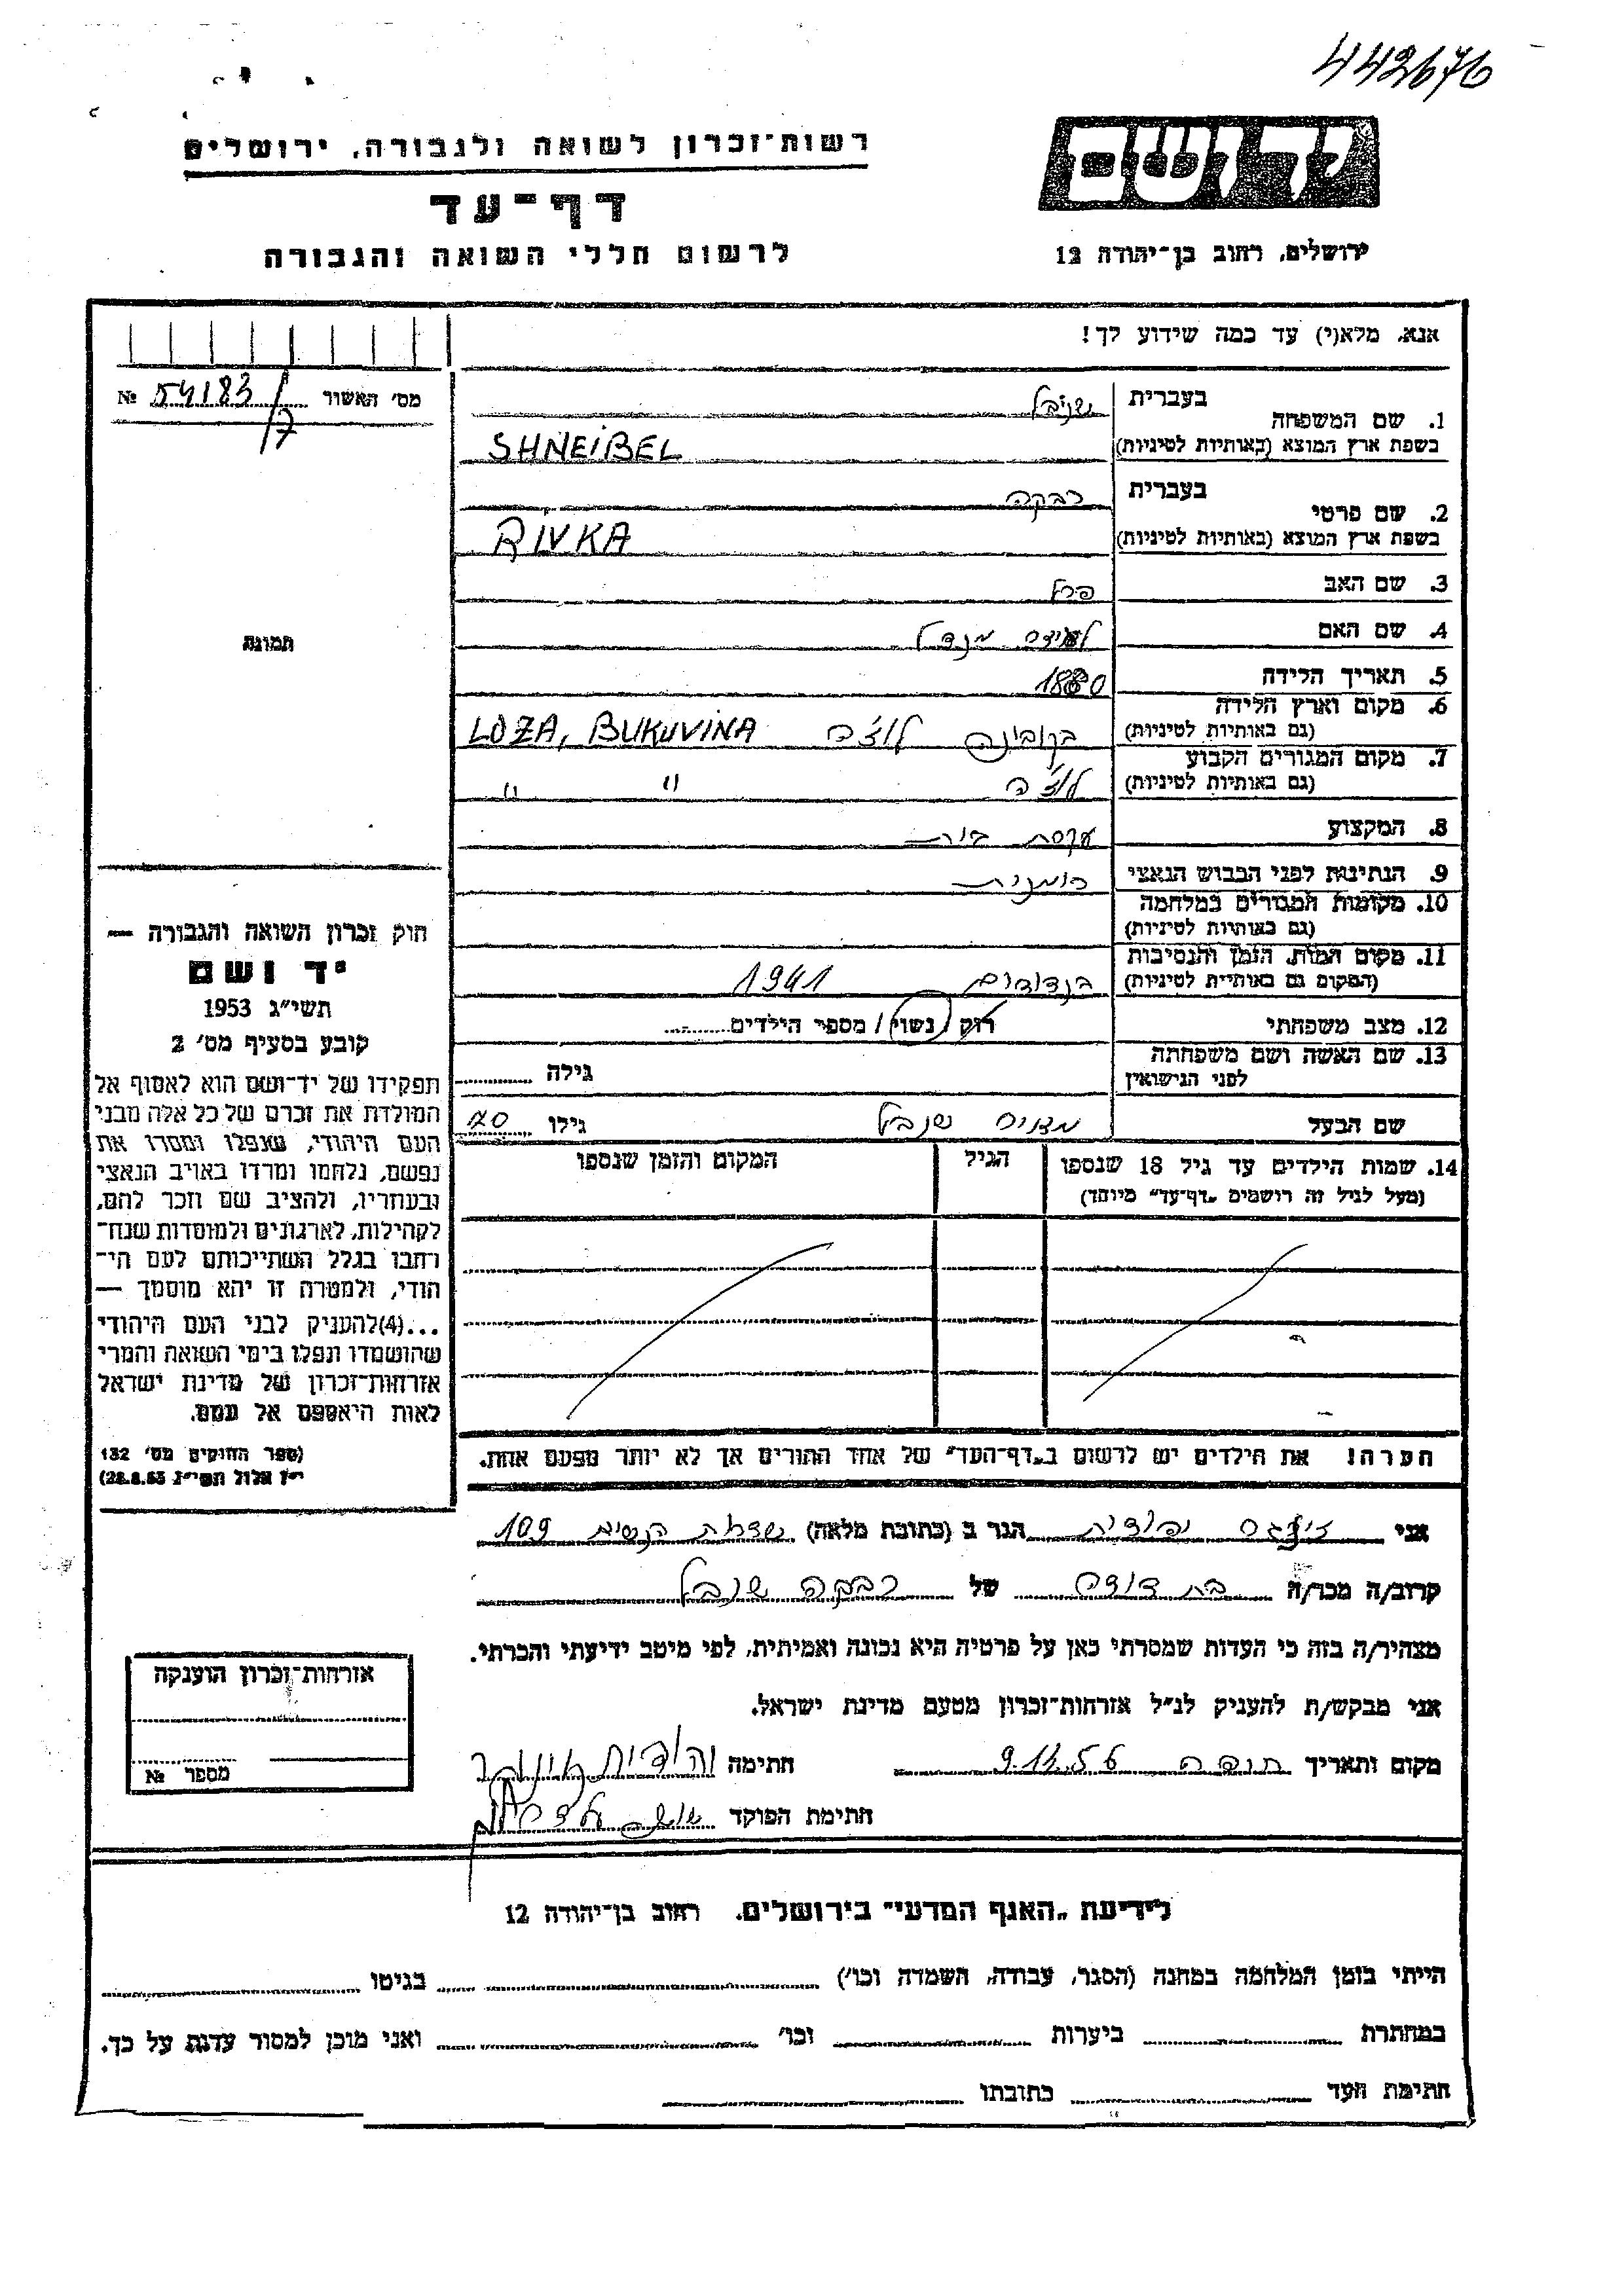 442676
רשות־זכרון לשואה ולגבורה, ירושלים
דף־עד
לרשום חללי השואה והגבורה
יד ושם
ירושלים, רחוב בן־יהודה 12
אנא, מלא(י) עד כמה שידוע לך!
מס' האשור 54183/7 №
1. שם המשפחה
בעברית שניבל
בשפת ארץ המוצא (באותיות לטיניות) SHNEIBEL
2. שם פרטי
בעברית רבקה
בשפת ארץ המוצא (באותיות לטיניות) RIVKA
3. שם האב
4. שם האם מנדל
5. תאריך הלידה 1880
6. מקום וארץ הלידה
(גם באותיות לטיניות) בקובינה לוז'ה LOZA, BUKUVINA
7. מקום המגורים הקבוע
(גם באותיות לטיניות) לוז'ה " "
8. המקצוע עקרת בית
9. הנתינות לפני הכבוש הנאצי רומנית
10. מקומות המגורים במלחמה
(גם באותיות לטיניות)
11. מקום המות, הזמן והנסיבות
(המקום גם באותיות לטיניות) בנדודים 1941
12. מצב משפחתי רוק / נשוי / מספר הילדים
13. שם האשה ושם משפחתה
לפני הנישואין גילה
שם הבעל שניבל גילו 70
14. שמות הילדים עד גיל 18 שנספו
(מעל לגיל זה רושמים „דף־עד" מיוחד)
הגיל
המקום והזמן שנספו
הערה! את הילדים יש לרשום ב„דף־העד" של אחד ההורים אך לא יותר מפעם אחת.
תמונה
חוק זכרון השואה והגבורה —
יד ושם
תשי״ג 1953
קובע בסעיף מס' 2
תפקידו של יד־ושם הוא לאסוף אל
המולדת את זכרם של כל אלה מבני
העם היהודי, שנפלו ומסרו את
נפשם, נלחמו ומרדו באויב הנאצי
ובעוזריו, ולהציב שם וזכר להם,
לקהילות, לארגונים ולמוסדות שנח־
רבו בגלל השתייכותם לעם הי־
הודי, ולמטרה זו יהא מוסמך —
...(4)להעניק לבני העם היהודי
שהושמדו ונפלו בימי השואה והמרי
אזרחות־זכרון של מדינת ישראל
לאות היאספם אל עמם.
(ספר החוקים מס' 132
י״ז אלול תשי״ג 28.8.53)
אני יהודית הגר ב (כתובת מלאה) שדרות הנשיא 109
קרוב/ה מכר/ה בת דודה של רבקה שניבל
מצהיר/ה בזה כי העדות שמסרתי כאן על פרטיה היא נכונה ואמיתית, לפי מיטב ידיעתי והכרתי.
אני מבקש/ת להעניק לנ״ל אזרחות־זכרון מטעם מדינת ישראל.
מקום ותאריך חיפה 9.12.56 חתימה יהודית
חתימת הפוקד
אזרחות־זכרון הוענקה
מספר №
לידיעת „האגף המדעי" בירושלים, רחוב בן־יהודה 12
הייתי בזמן המלחמה במחנה (הסגר, עבודה, השמדה וכו') בגיטו
במחתרת ביערות וכו' ואני מוכן למסור עדות על כך.
חתימת העד כתובתו